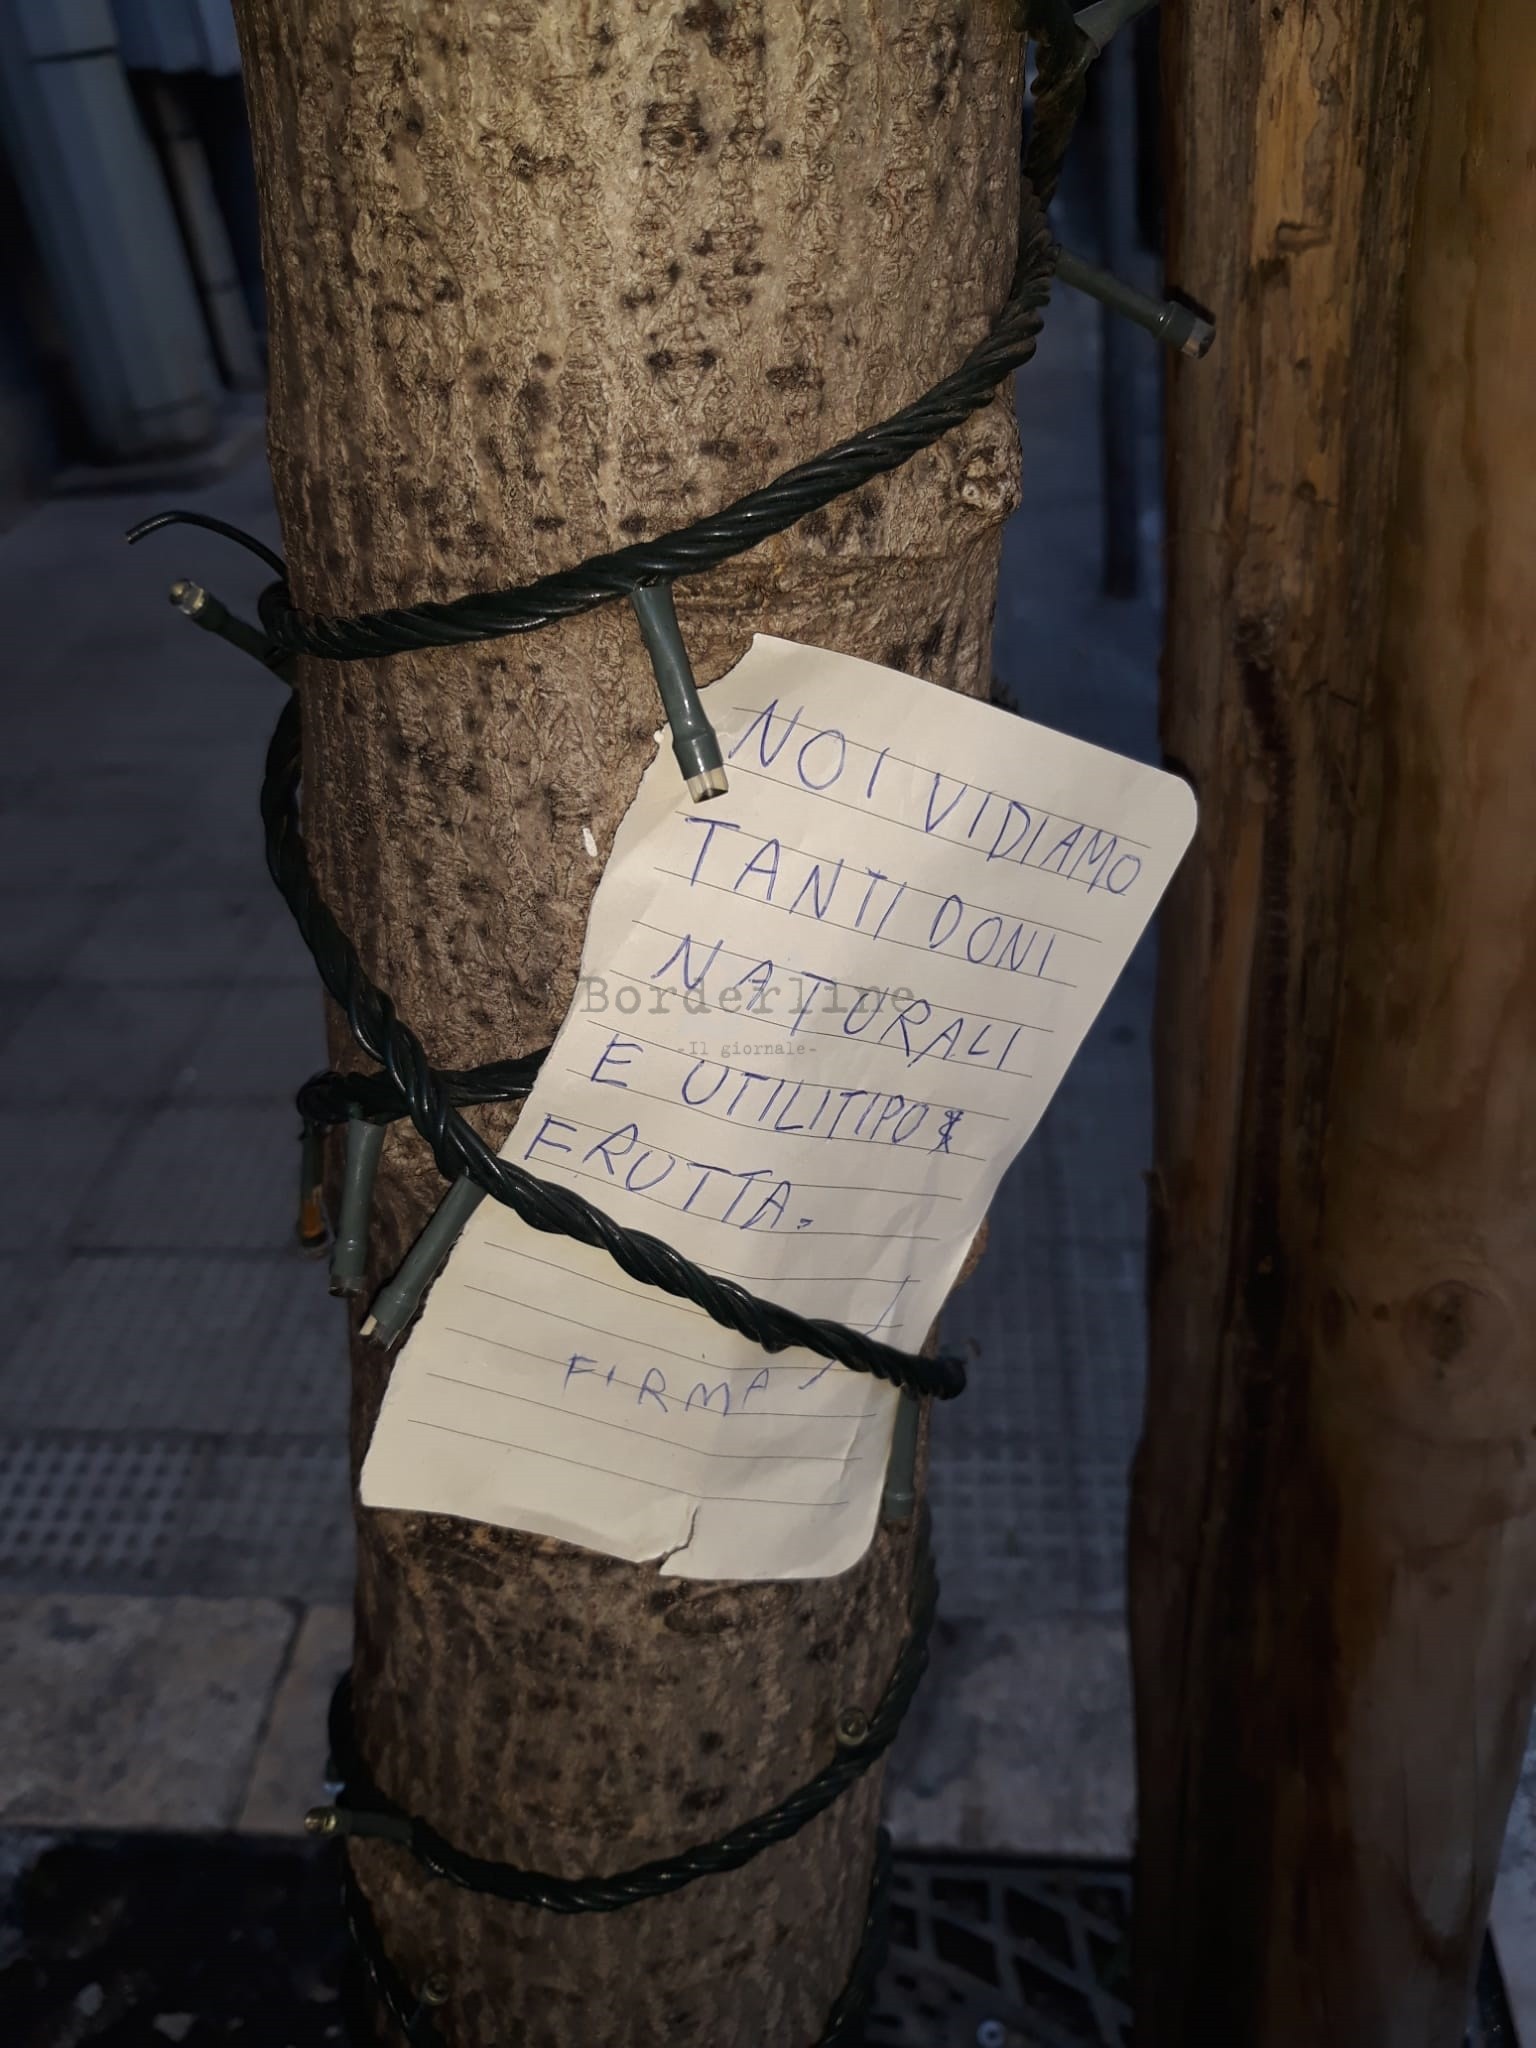 NOI VIDIAMO
TANTI DONI
NATURALI
E UTILI TIPO
FRUTTA.
FIRMA
Borderline
-Il giornale-